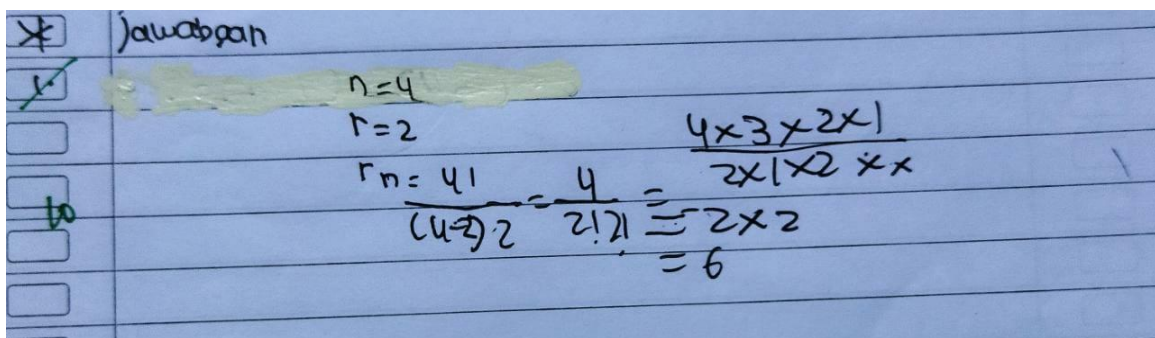 * Jawabgan
1.
n=4
r=2
rn= 4! / (4-2)·2 = 4 / 2!2! = 4×3×2×1 / 2×1×2 ××
= 2×2
= 6
10